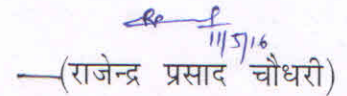 11/5/16
(राजेन्द्र प्रसाद चौधरी)